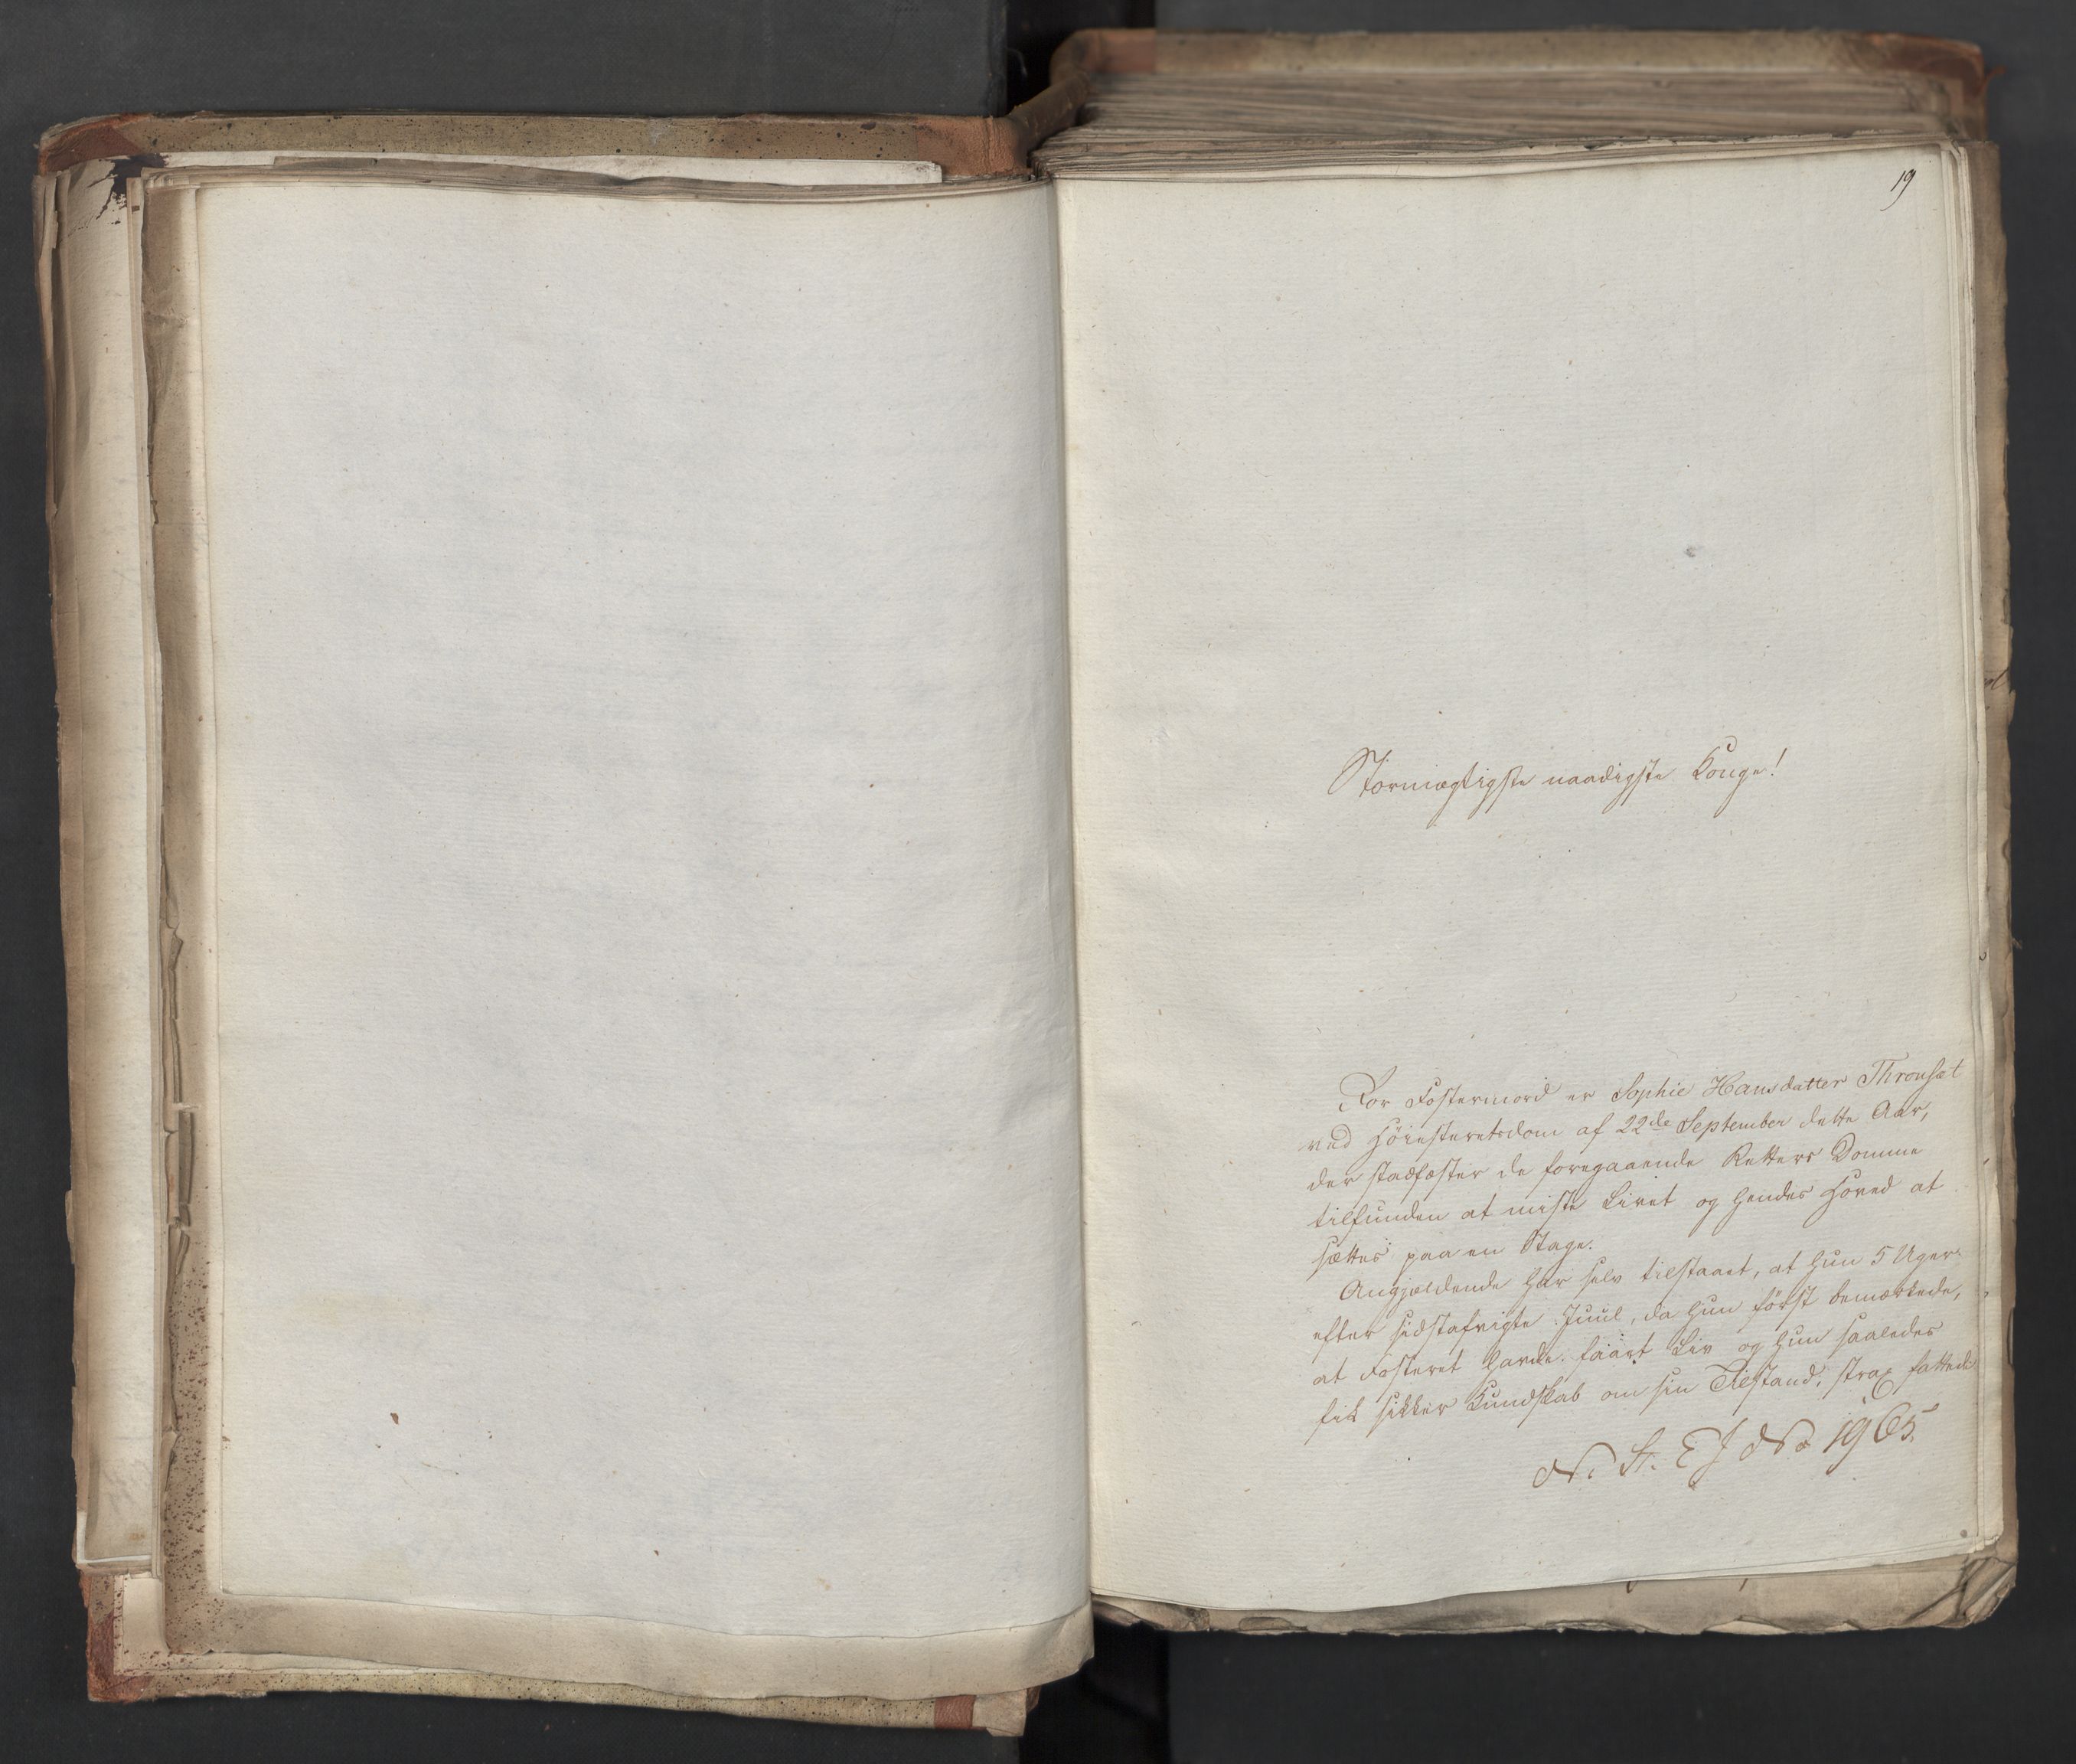 19
Stormægtigste naadigste Konge!
For Fostermord er Sophie Hansdatter Thronsæt
ved Höiesteretsdom af 22de September dette Aar,
der stadfæster de foregaaende Retters Domme
tilfunden at miste Livet og hendes Hoved at
sættes paa en Stage.
Angjældende har selv tilstaaet, at hun 5 Uger
efter sidstafvigte Juul, da hun först bemærkede,
at Fosteret havde faaet Liv og hun saaledes
fik sikker Kundskab om sin Tilstand, strax fattede
N. St. E J No 1965.